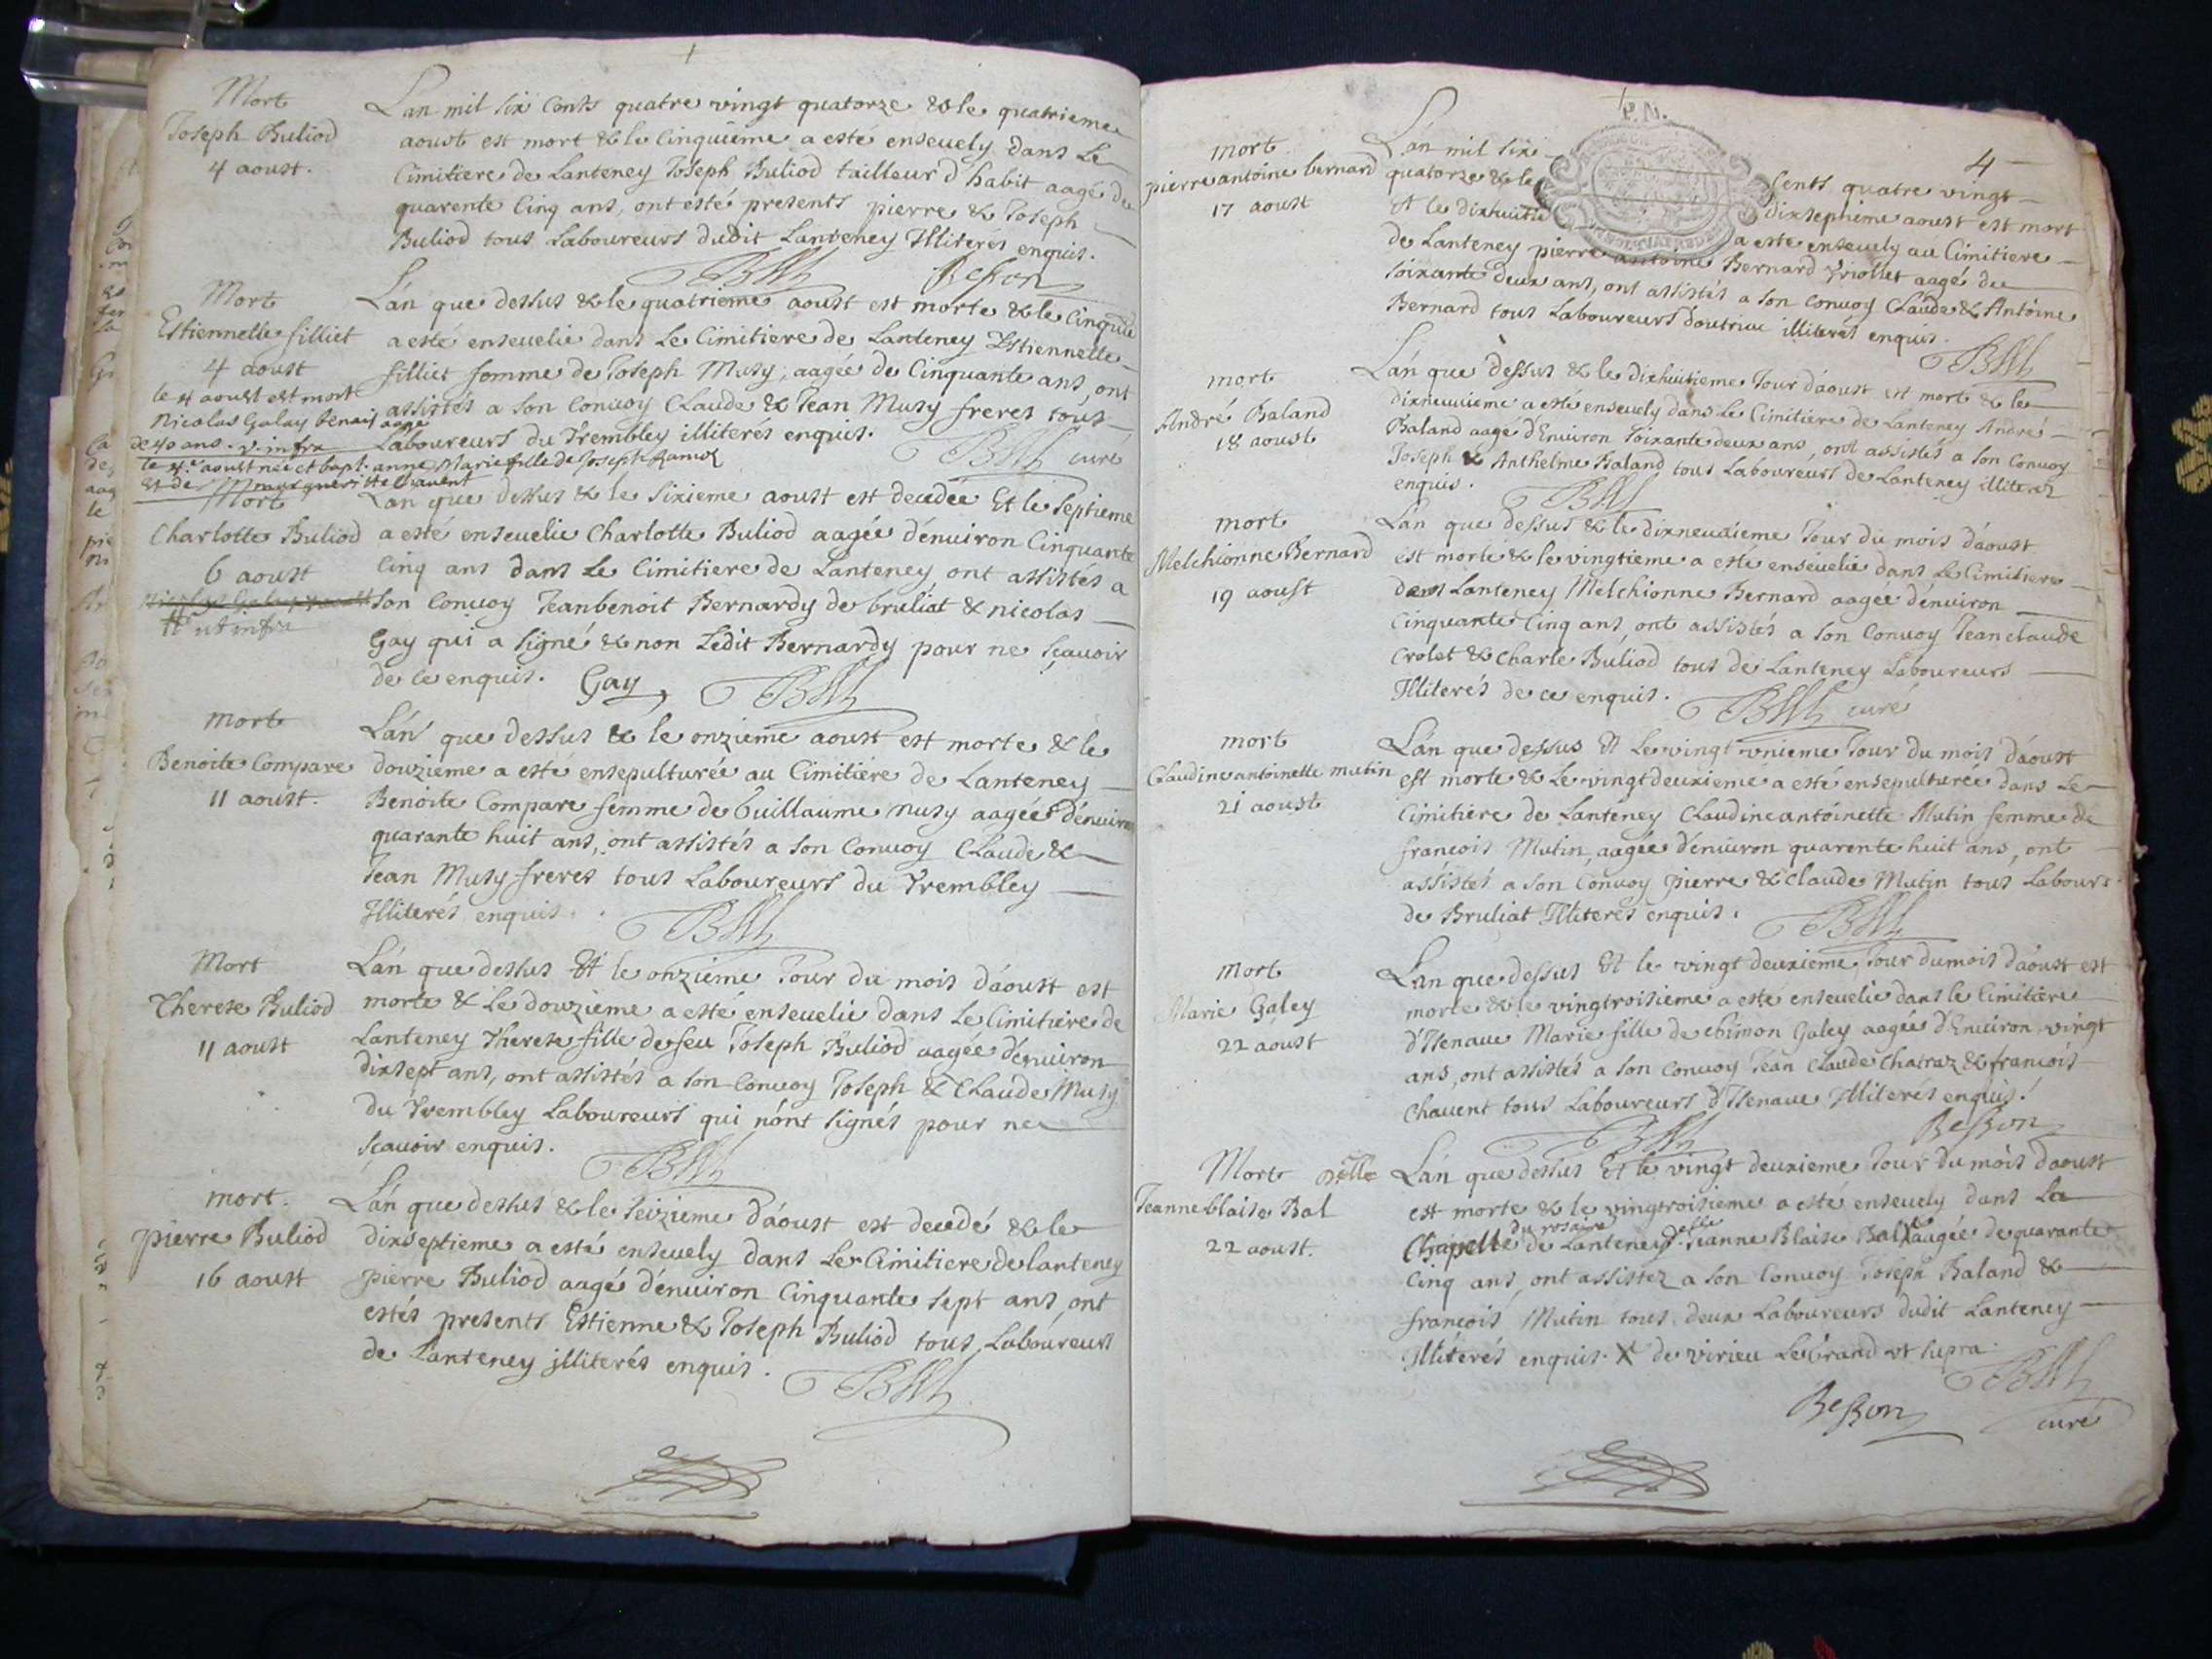 Mort
Joseph Buliod
4 aoust.
Lan mil six Cents quatre vingt quatorze & le quatrieme
aoust est mort & le Cinquieme a esté enseuely dans Le
Cimitiere de Lanteney Joseph Buliod tailleur d'habit aagé de
quarente Cinq ans, ont esté presents pierre & Joseph
Buliod tous Laboureurs dudit Lanteney Illiterés enquis.
Besson
Mort
Estiennette filliet
4 aoust
Lán que dessus & le quatrieme aoust est morte & le Cinquie
a esté enseuelie dans Le Cimitiere de Lanteney Estiennette
filliet femme de Joseph Musy, aagée de Cinquante ans, ont
assistés a son Conuoy Claude & Jean Musy freres tous
Laboureurs du Trembley illiterés enquis.
curé
le 4 aoust est mort
Nicolas Galay benais aagé
de 40 ans. v. infra
le 4.e aoust née et bapt. anne Marie fille de Joseph
et de Marguerite Chauent
Mort
Charlotte Buliod
6 aoust
ut infra
Lan que dessus & le sixieme aoust est decedée Et le septieme
a esté enseuelie Charlotte Buliod aagée d'énuiron Cinquante
Cinq ans dans Le Cimitiere de Lanteney, ont assistés a
son Conuoy Jeanbenoit Bernardy de bruliat & nicolas
Gay qui a signé & non Ledit Bernardy pour ne sçauoir
de ce enquis. Gay
mort
Benoite Compare
11 aoust.
Lán que dessus & le onzieme aoust est morte & le
douzieme a esté ensepulturée au Cimitiere de Lanteney
Benoite Compare femme de Guillaume Musy aagée d'énuiron
quarante huit ans, ont assistés a son Conuoy Claude &
Jean Musy freres tous Laboureurs du Trembley
Illiterés enquis.
Mort
Therese Buliod
11 aoust
Lán que dessus Et le onzieme Jour du mois d'áoust est
morte & Le douzieme a esté enseuelie dans Le Cimitiere de
Lanteney Therese fille de feu Joseph Buliod aagée d'énuiron
dixsept ans, ont assistés a son Conuoy Joseph & Claude Musy
du Trembley Laboureurs qui n'ónt signés pour ne
sçauoir enquis.
mort.
pierre Buliod
16 aoust
Lán que dessus & le seizieme d'áoust est decedé & le
dixseptieme a esté enseuely dans Le Cimitiere de lanteney
pierre Buliod aagé d'énuiron Cinquante sept ans, ont
estés presents Estienne & Joseph Buliod tous Laboureurs
de Lanteney illiterés enquis.
4
mort
pierre antoine bernard
17 aoust
Lán mil six Cents quatre vingt
quatorze & le dixseptieme aoust est mort
Et le dixhuitie a esté enseuely au Cimitiere
de Lanteney pierre antoine Bernard aagé de
soixante deux ans, ont assistés a son conuoy Claude & Antoine
Bernard tous Laboureurs d'outriaz illiterés enquis.
mort
André Baland
18 aoust
Lán que dessus & le dixhuitieme Jour d'áoust est mort & le
dixneuuieme a esté enseuely dans Le Cimitiere de Lanteney André
Baland aagé d'Enuiron soixante deux ans, ont assistés a son Conuoy
Joseph & Anthelme Baland tous Laboureurs de Lanteney illiterez
enquis.
mort
Melchionne Bernard
19 aoust
Lán que dessus & le dixneuuieme Jour du mois d'áoust
est morte & le vingtieme a esté enseuelie dans Le Cimitiere
dans Lanteney Melchionne Bernard aagée d'énuiron
Cinquante Cinq ans, ont assistés a son Conuoy Jean claude
Crolet & Charle Buliod tous de Lanteney Laboureurs
Illiterés de ce enquis.
curé
mort
Claudine antoinette mutin
21 aoust
Lán que dessus Et Le vingt vnieme Jour du mois d'áoust
est morte & Le vingtdeuxieme a esté ensepulturée dans Le
Cimitiere de Lanteney Claudine antoinette Mutin femme de
françois Mutin, aagée d'énuiron quarente huit ans, ont
assistés a son Conuoy pierre & Claude Mutin tous Labours
de Bruliat Illiterés enquis.
Mort
Marie Galey
22 aoust
Lan que dessus Et le vingt deuxieme Jour du mois d'áoust est
morte & le vingtroisieme a esté enseuelie dans le Cimitiere
d'Isenaue Marie fille de Chimon Galey aagée d'Enuiron vingt
ans, ont assistés a son Conuoy Jean Claude Chatraz & françois
Chauent tous Laboureurs d'Isenaue Illiterés enquis.
Besson
Mort Delle
Jeanne blaise Bal
22 aoust.
Lán que dessus Et le vingt deuxieme Jour du móis d'aoust
est morte & le vingtroisieme a esté enseuely dans La
Chapelle du rosaire de Lanteney Delle Jeanne Blaise Bal X aagée de quarante
Cinq ans, ont assistez a son Conuoy Joseph Baland &
françois Mutin tous deux Laboureurs dudit Lanteney
Illiterés enquis. X de virieu Le Grand vt supra.
Besson
curé